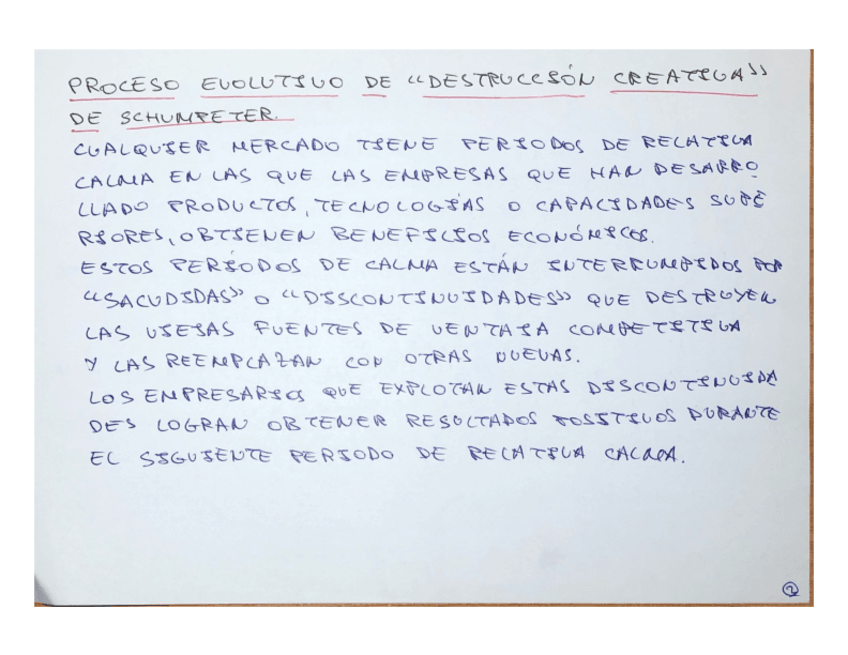 PROCESO EVOLUTIVO DE "DESTRUCCIÓN CREATIVA"
DE SCHUMPETER.
CUALQUIER MERCADO TIENE PERIODOS DE RELATIVA
CALMA EN LAS QUE LAS EMPRESAS QUE HAN DESARRO
LLADO PRODUCTOS, TECNOLOGÍAS O CAPACIDADES SUPE
RIORES, OBTIENEN BENEFICIOS ECONÓMICOS.
ESTOS PERÍODOS DE CALMA ESTÁN INTERRUMPIDOS POR
"SACUDIDAS" O "DISCONTINUIDADES" QUE DESTRUYEN
LAS VIEJAS FUENTES DE VENTAJA COMPETITIVA
Y LAS REEMPLAZAN CON OTRAS NUEVAS.
LOS EMPRESARIOS QUE EXPLOTAN ESTAS DISCONTINUIDA
DES LOGRAN OBTENER RESULTADOS POSITIVOS DURANTE
EL SIGUIENTE PERIODO DE RELATIVA CALMA.
2